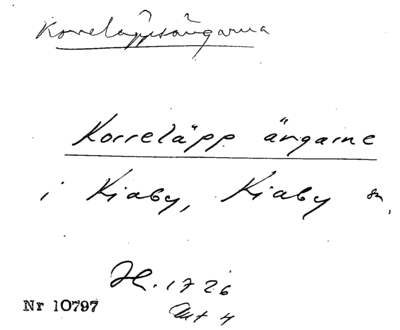 Korreläppsängarna
Korreläpp ängarne
i Kiaby, Kiaby sn.
H. 1726
Akt 4
Nr 10797